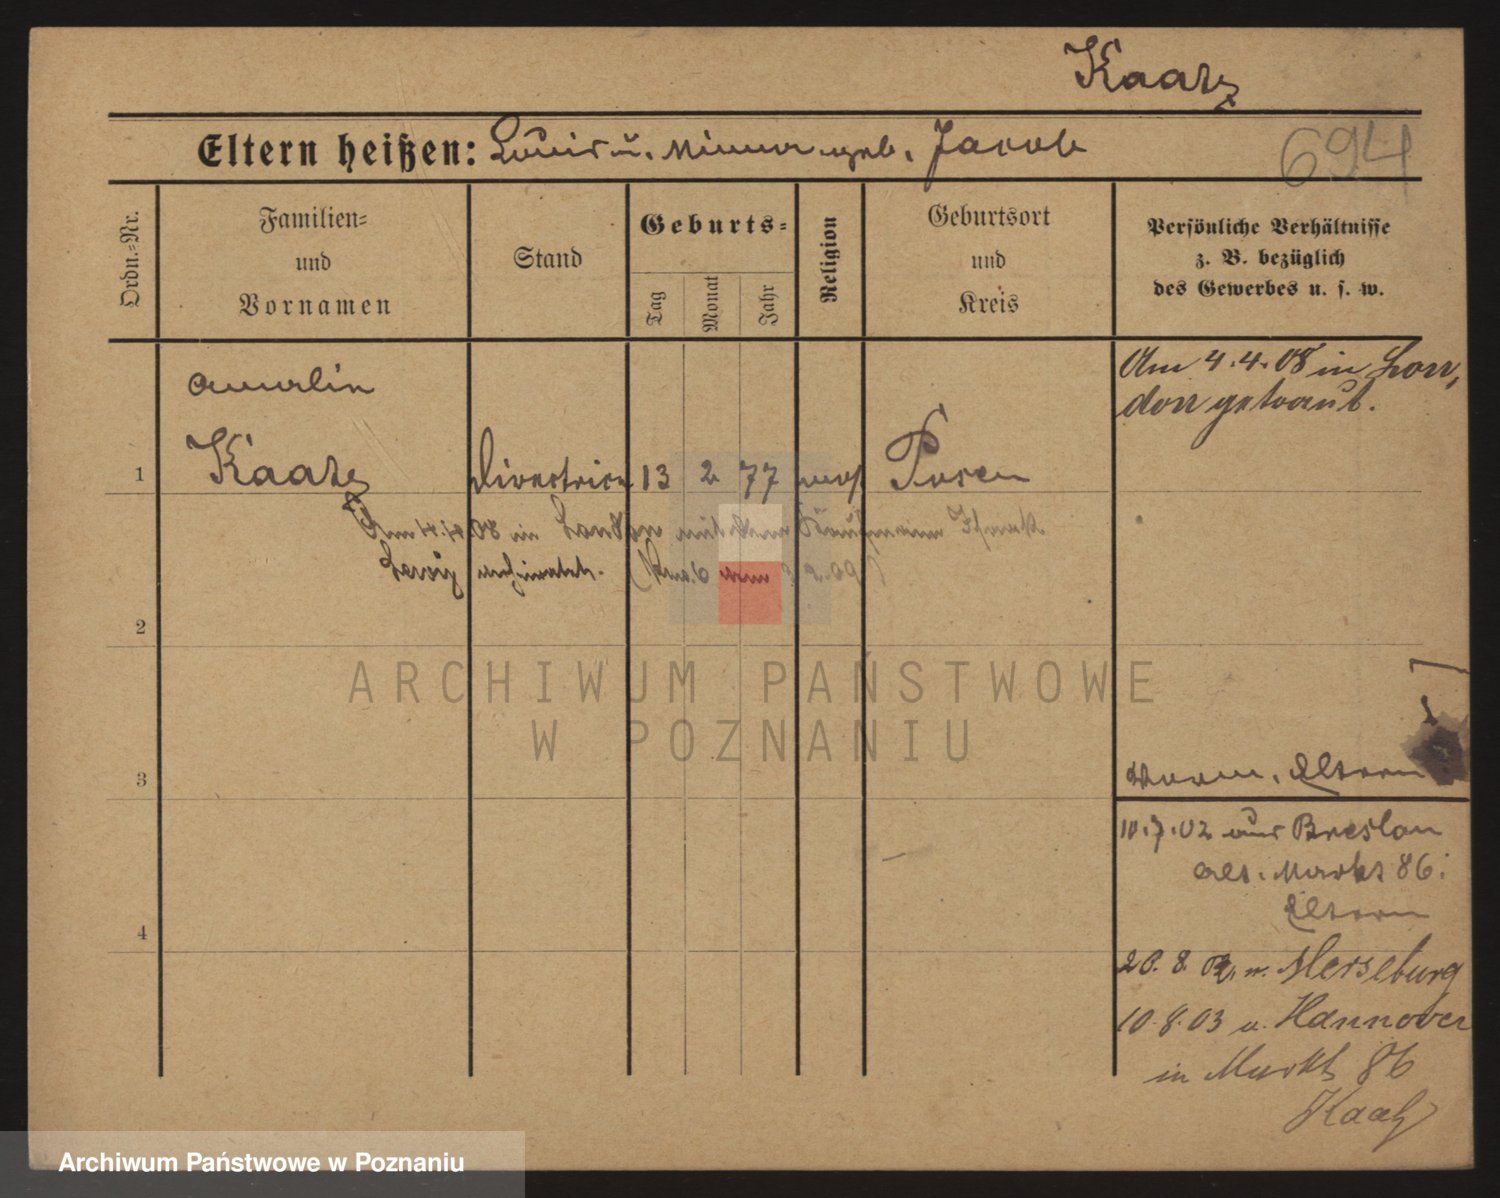 Kaatz
Eltern heißen: Louis u. Minna geb. Jacob
694
Ordn.=Nr.
Familien=
und
Vornamen
Stand
Geburts=
Tag
Monat
Jahr
Religion
Geburtsort
und
Kreis
Persönliche Verhältnisse
z. B. bezüglich
des Gewerbes u. s. w.
Am 4.4.08 in Lon,
don getraut.
Amalin
1 Kaatz Directrice 13 2 77 mos Posen
Am 4.4.08 in London mit dem Kaufmann
Levy verheiratet.
2
3
Eltern
10.7.02 aus Breslau
Alt. Markt 86.
Eltern
4
20. 8. n. Merseburg
10.8.03 v. Hannover
in Markt 86
Kaatz
ARCHIWUM PAŃSTWOWE
W POZNANIU
Archiwum Państwowe w Poznaniu